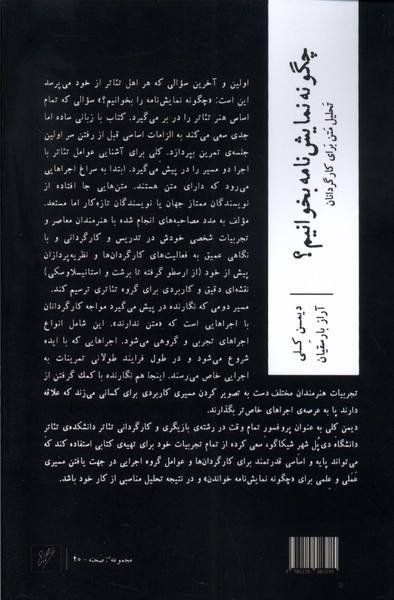 چگونه نمایش‌نامه بخوانیم؟
تحلیل متن برای کارگردانان
دیمن کِلی
آراز بارسقیان
اولین و آخرین سؤالی که هر اهل تئاتر از خود می‌پرسد
این است: «چگونه نمایش‌نامه را بخوانیم؟» سؤالی که تمام
اساس هنر تئاتر را در بر می‌گیرد. کتاب با زبانی ساده اما
جدی سعی می‌کند به الزامات اساسی قبل از رفتن سر اولین
جلسه‌ی تمرین بپردازد. کلی برای آشنایی عوامل تئاتر با
اجرا دو مسیر را در پیش می‌گیرد. ابتدا به سراغ اجراهایی
می‌رود که دارای متن هستند. متن‌هایی جا افتاده از
نویسندگان ممتاز جهان یا نویسندگان تازه‌کار اما مستعد.
مؤلف به مدد مصاحبه‌های انجام شده با هنرمندان معاصر و
تجربیات شخصی خودش در تدریس و کارگردانی و با
نگاهی عمیق به فعالیت‌های کارگردان‌ها و نظریه‌پردازان
پیش از خود (از ارسطو گرفته تا برشت و استانیسلاوسکی)
نقشه‌ای دقیق و کاربردی برای گروه تئاتری ترسیم کند.
مسیر دومی که نگارنده در پیش می‌گیرد مواجه کارگردانان
با اجراهایی است که «متن ندارند». این شامل انواع
اجراهای تجربی و گروهی می‌شود. اجراهایی که با ایده
شروع می‌شود و در طول فرایند طولانی تمرینات به
اجرایی خاص می‌رسند. اینجا هم نگارنده با کمک گرفتن از
تجربیات هنرمندان مختلف دست به تصویر کردن مسیری کاربردی برای کسانی می‌زند که علاقه
دارند پا به عرصه‌ی اجراهای خاص‌تر بگذارند.
دیمن کلی به عنوان پروفسور تمام وقت در رشته‌ی بازیگری و کارگردانی تئاتر دانشکده‌ی تئاتر
دانشگاه دی‌پُل شهر شیکاگو، سعی کرده از تمام تجربیات خود برای تهیه‌ی کتابی استفاده کند که
می‌تواند پایه و اساسی قدرتمند برای کارگردان‌ها و عوامل گروه اجرایی در جهت یافتن مسیری
عَمَلی و عِلمی برای «چگونه نمایش‌نامه خواندن» و در نتیجه تحلیل مناسبی از کار خود باشد.
مجموعه صحنه - ۴۰